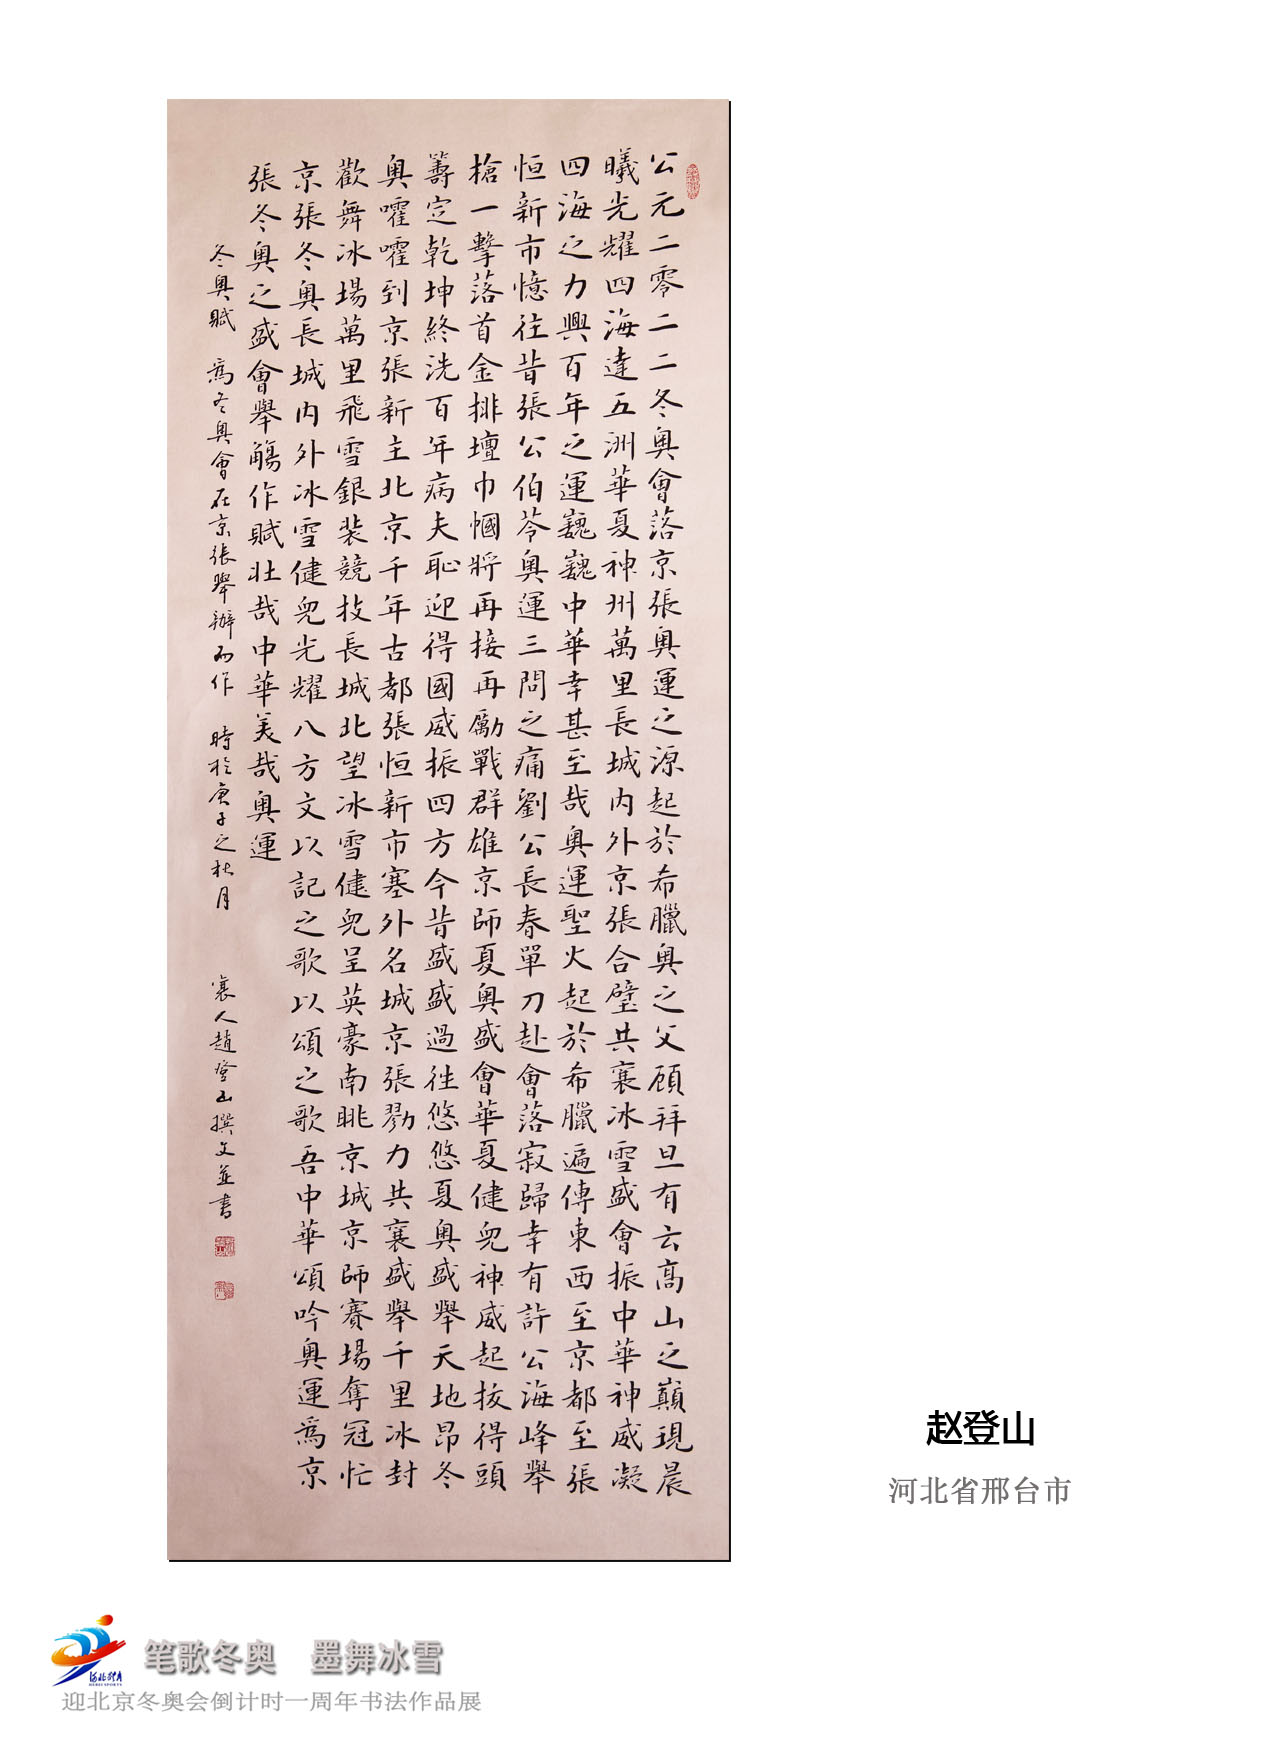 公元二零二二冬奥會落京張奥運之源起於希臘奥之父顧拜旦有云高山之巔現晨
曦光耀四海達五洲華夏神州萬里長城内外京張合璧共襄冰雪盛會振中華神威凝
四海之力興百年之運巍巍中華幸甚至哉奥運聖火起於希臘遍傳東西至京都至張
恒新市憶往昔張公伯苓奥運三問之痛劉公長春單刀赴會落寂歸幸有許公海峰舉
槍一擊落首金排壇巾幗將再接再勵戰群雄京師夏奥盛會華夏健兒神威起拔得頭
籌定乾坤終洗百年病夫恥迎得國威振四方今昔盛盛過往悠悠夏奥盛舉天地昂冬
奥嚯嚯到京張新主北京千年古都張恒新市塞外名城京張勠力共襄盛舉千里冰封
歡舞冰場萬里飛雪銀裝競技長城北望冰雪健兒呈英豪南眺京城京師賽場奪冠忙
京張冬奥長城内外冰雪健兒光耀八方文以記之歌以頌之歌吾中華頌吟奥運爲京
張冬奥之盛會舉觴作賦壯哉中華美哉奥運
冬奥賦 爲冬奥會在京張舉辦而作 時於庚子之秋月 襄人趙登山撰文並書
赵登山
河北省邢台市
河北体育
HEBEI SPORTS
笔歌冬奥 墨舞冰雪
迎北京冬奥会倒计时一周年书法作品展